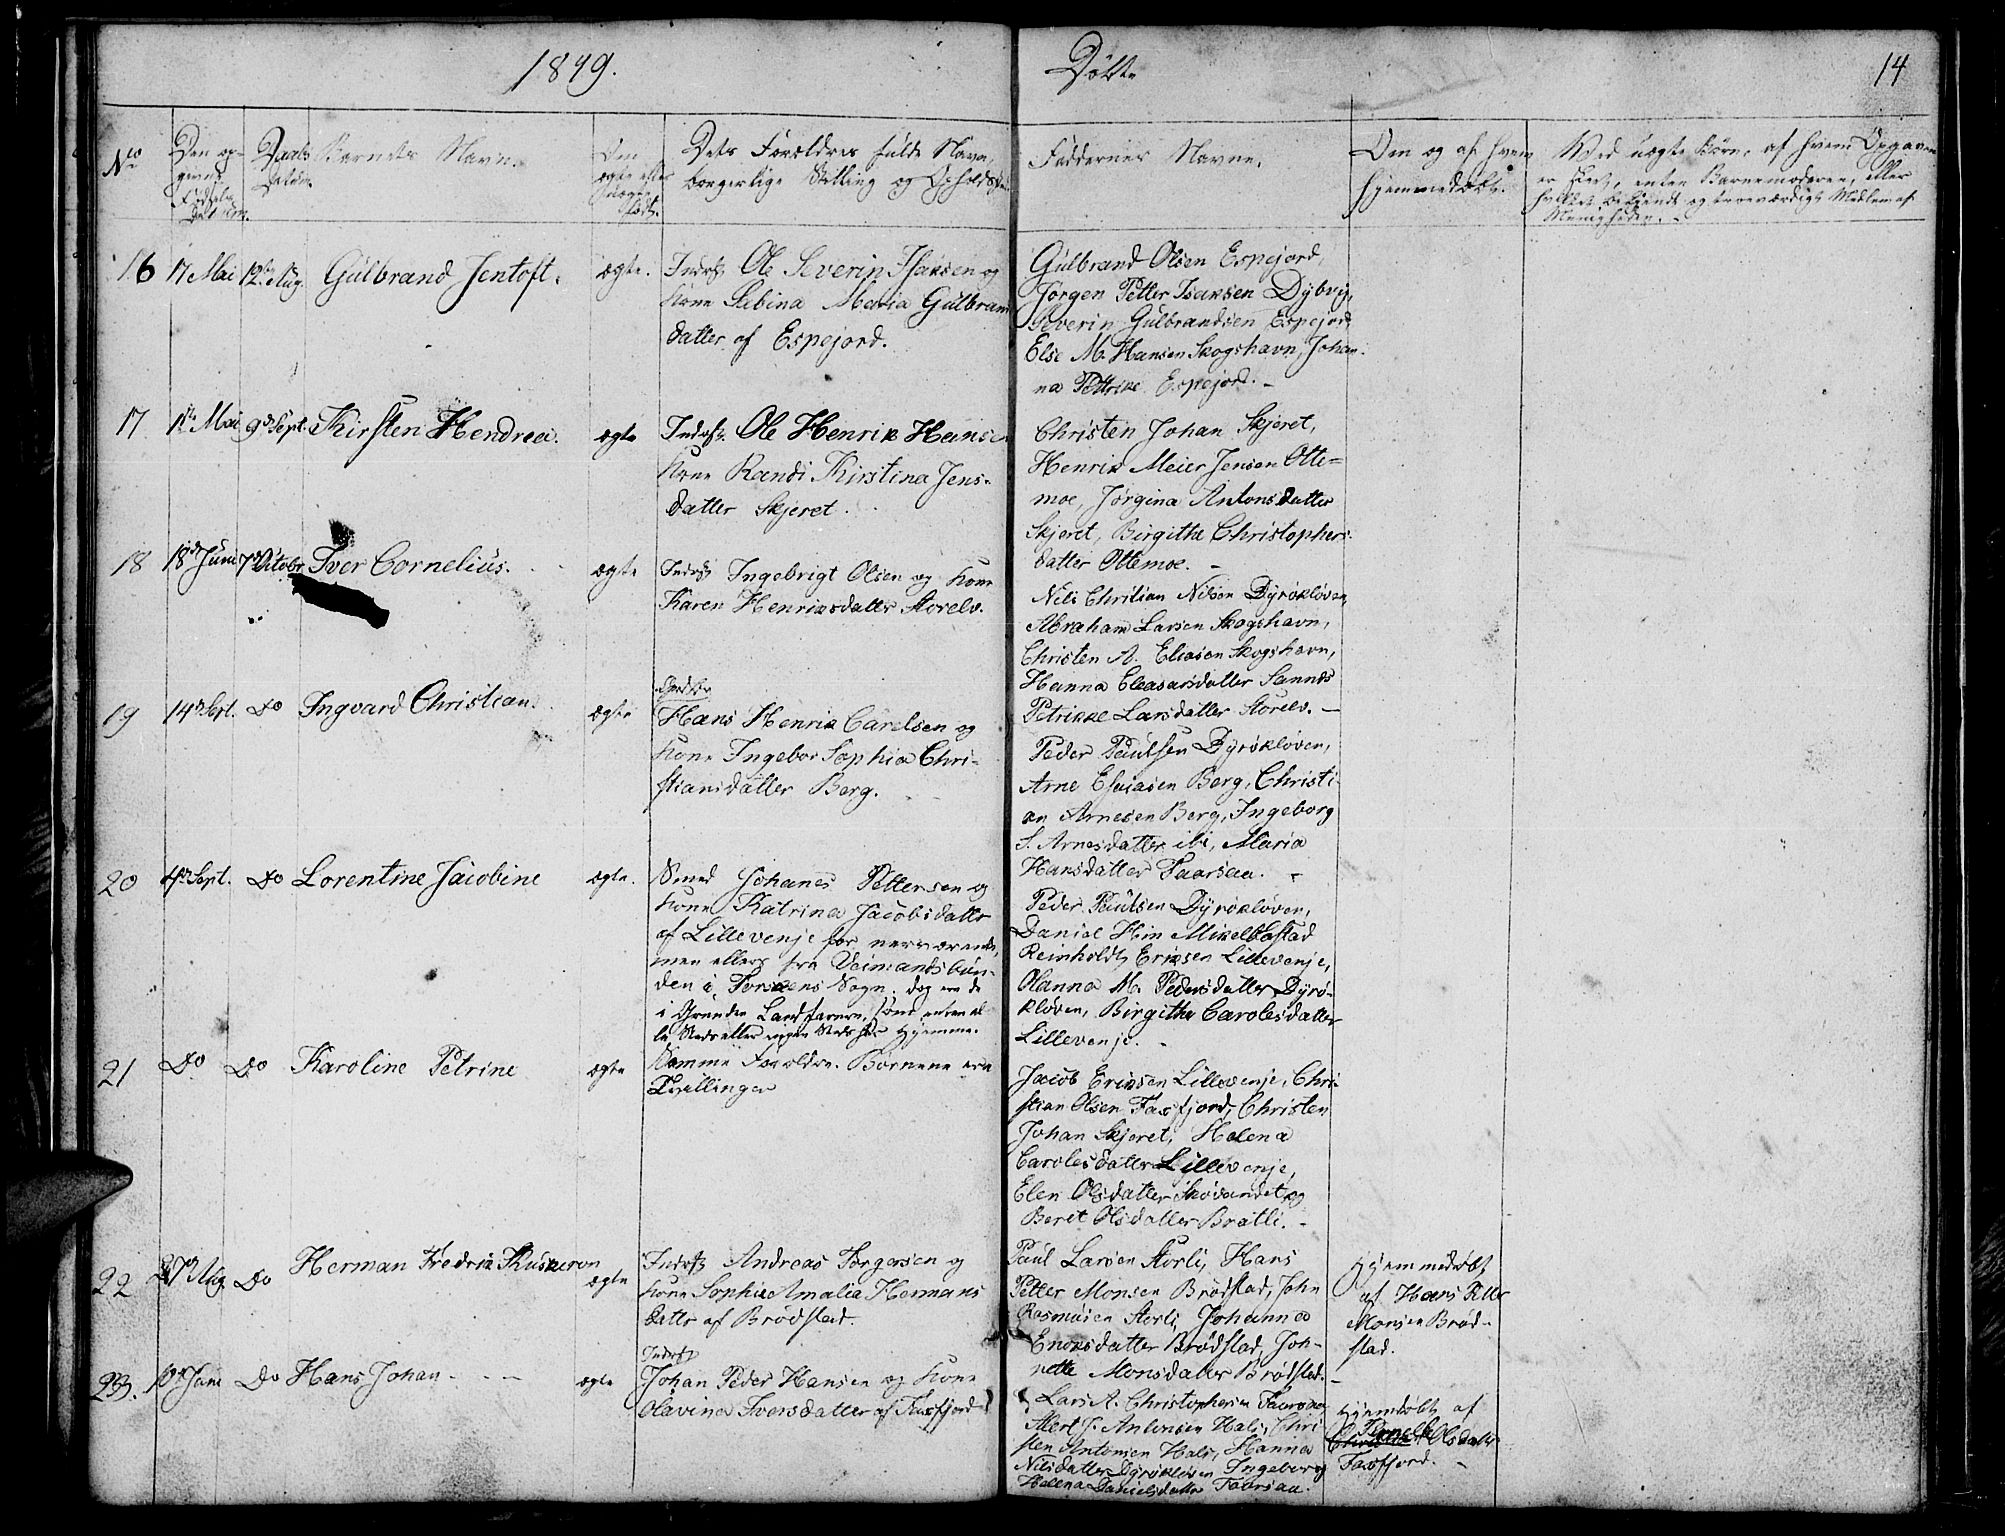 1849.
Døbte
14
No
Den op-
givne
Fødsels
Datum.
Daabs
Datum.
Barnets Navn.
Om
ægte eller
uægte
født.
Dets Forældres fulde Navn,
borgerlige Stilling og Opholds
Faddernes Navne.
Om og af hvem
hjemmedøbt.
Ved uægte Børn, af hvem Opgaven
er skeet, enten Barnemoderen, eller
hvilket bekjendt og troeværdigt Medlem af
Menigheden.
16
17 Mai
12te Aug.
Gulbrand Jentoft.
ægte.
Inderst Ole Severin Isaksen og
Kone Sabina Maria Gulbrands
datter af Espejord.
Gulbrand Olsen Espejord,
Jørgen Petter Isaksen Dybvig,
Severin Gulbrandsen Espejord
Else M. Hansen Skogshavn, Johan-
na Pettrike Espejord. -
17
1te Mai
9de Sept.
Kirsten Hendrea.
ægte
Inderst. Ole Henrik Hansen
Kone Randi Kirstina Jens-
datter Skjeret.
Christen Johan Skjeret,
Henrik Meier Jensen Otte=
moe, Jørgina Antonsdatter
Skjeret, Birgithe Christophers-
datter Ottemoe. -
18
18de Juni
7de Octobr.
Iver Cornelius.
ægte
Inderst Ingebrigt Olsen og Kone
Karen Henriksdatter Storelv.
Nils Christian Nilsen Dyrøkløven,
Abraham Larsen Skogshavn,
Christen A. Eliasen Skogshavn,
Hanna Eleasarsdatter Sannds
Petrikke Larsdatter Storelv. -
19
14de Sept.
Do
Ingvard Christian.
ægte
Hans Henrik Carelsen og
Kone Ingebor Sophia Chri-
stiansdatter Berg.
Peder Paulsen Dyrøkløven,
Arne Esaiasen Berg, Christi-
an Arnesen Berg, Ingeborg
S. Arnesdatter ibi, Maria
Hansdatter Faarsaa. -
20
4de Sept.
Do
Lorentine Jacobine
ægte.
Smed Johanes Pettersen og
Kone Katrina Jacobsdatter
af Lillevenje for nærværende,
men ellers fra Veimandsbun-
den i Torskens Sogn. dog ere de
i Grunden Landfarere, som enten al-
le Steds eller ingen Steds har Hjemme.
Peder Paulsen Dyrøkløven,
Daniel Him Mikelbostad
Reinholdt Eriksen Lillevenje,
Olanna M. Pedersdatter Dyrø-
kløven, Birgithe Carolesdatter
Lillevenje. -
21
Do
Do
Karoline Petrine
ægte
Samme Forældre. Børnene ere
Tvillinger
Jacob Eriksen Lillevenje, Chri-
stian Olsen Faxfjord, Christen
Johan Skjeret, Helena
Carolesdatter Lillevenje,
Elen Olsdatter Skøvandet, og
Beret Olsdatter Bratli. -
22
27de Aug
Do
Herman Fredrik Kuskeron
ægte
Inderst Andreas Torgersen og
Kone Sophie Amalia Hermans
datter af Brødstad.
Paul Larsen Storli, Hans
Petter Monsen Brødstad, John
Rasmusen Storli, Johanna
Enoksdatter Brødstad, Joh-
nette Monsdatter Brødstad. -
Hjemmedøbt
af Hans Petter
Monsen Brød-
stad.
23.
10de Juni
Do
Hans Johan - - -
ægte
Inderst
Johan Peder Hansen og Kone
Olavina Iversdatter af Faxfjord
Lars A. Christophersen Faarsaa
Albert J. Antonsen Hals, Chri
sten Antonsen Hals, Hanna
Nilsdatter Dyrøkløven Ingeborg
Helena Danielsdatter Faarsaa.
Hjemdøbt af
Olsdatter
Faxfjord. -